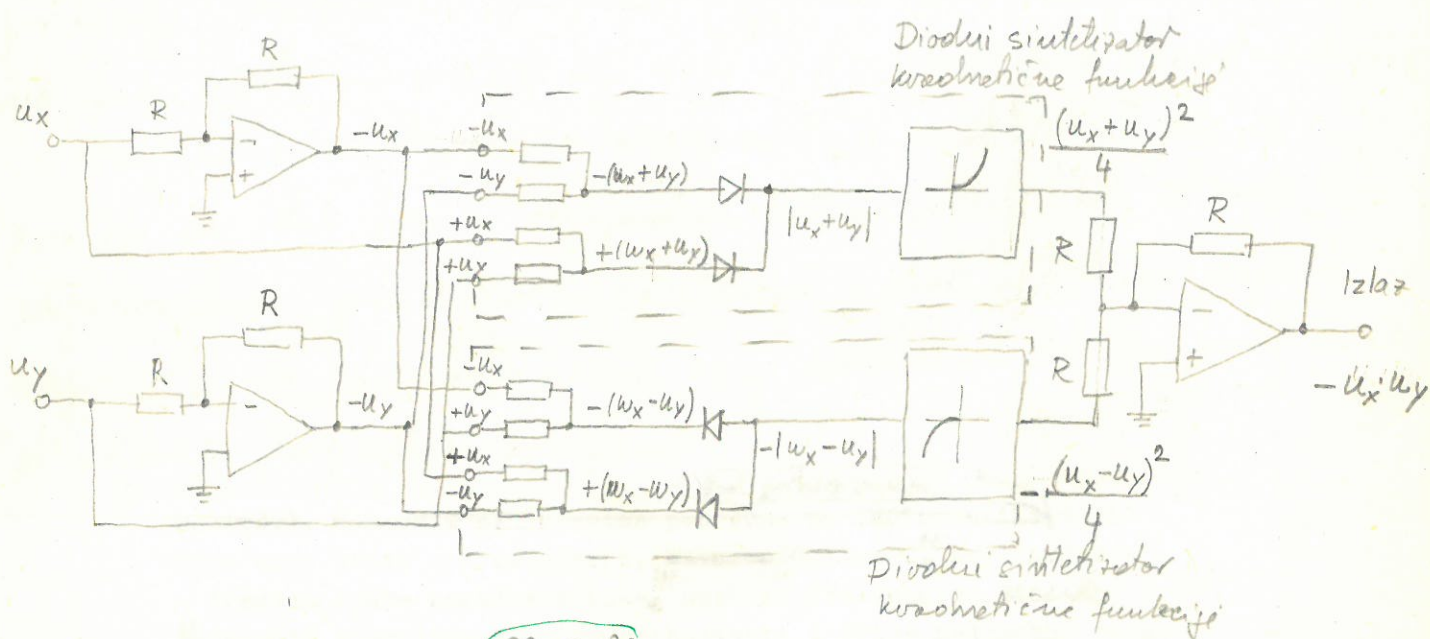 Diodni sintetizator
kvadratične funkcije
R
u_x
R
-
+
-u_x
-u_x
-u_y
+u_x
+u_y
-(u_x+u_y)
+(u_x+u_y)
|u_x+u_y|
(u_x+u_y)^2
4
R
R
-
+
Izlaz
-u_x·u_y
R
u_y
R
-
+
-u_y
-u_x
+u_y
+u_x
-u_y
-(u_x-u_y)
+(u_x-u_y)
-|u_x-u_y|
R
-(u_x-u_y)^2
4
Diodni sintetizator
kvadratične funkcije